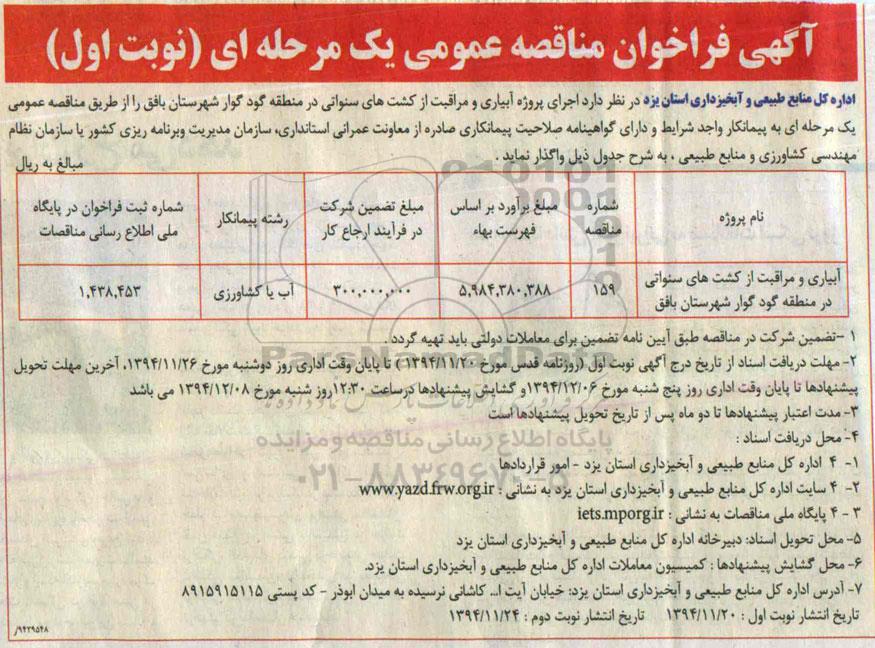 آگهی فراخوان مناقصه عمومی یک مرحله ای (نوبت اول)
اداره کل منابع طبیعی و آبخیزداری استان یزد در نظر دارد اجرای پروژه آبیاری و مراقبت از کشت های سنواتی در منطقه گود گوار شهرستان بافق را از طریق مناقصه عمومی
یک مرحله ای به پیمانکار واجد شرایط و دارای گواهینامه صلاحیت پیمانکاری صادره از معاونت عمرانی استانداری، سازمان مدیریت وبرنامه ریزی کشور یا سازمان نظام
مهندسی کشاورزی و منابع طبیعی ، به شرح جدول ذیل واگذار نماید .
مبالغ به ریال
نام پروژه
شماره مناقصه
مبلغ برآورد بر اساس فهرست بهاء
مبلغ تضمین شرکت در فرآیند ارجاع کار
رشته پیمانکار
شماره ثبت فراخوان در پایگاه ملی اطلاع رسانی مناقصات
آبیاری و مراقبت از کشت های سنواتی در منطقه گود گوار شهرستان بافق
۱۵۹
۵,۹۸۴,۳۸۰,۳۸۸
۳۰۰,۰۰۰,۰۰۰
آب یا کشاورزی
۱,۴۳۸,۴۵۳
۱ -تضمین شرکت در مناقصه طبق آیین نامه تضمین برای معاملات دولتی باید تهیه گردد .
۲- مهلت دریافت اسناد از تاریخ درج آگهی نوبت اول (روزنامه قدس مورخ ۱۳۹۴/۱۱/۲۰) تا پایان وقت اداری روز دوشنبه مورخ ۱۳۹۴/۱۱/۲۶، آخرین مهلت تحویل
پیشنهادها تا پایان وقت اداری روز پنج شنبه مورخ ۱۳۹۴/۱۲/۰۶و گشایش پیشنهادها درساعت ۱۲:۳۰روز شنبه مورخ ۱۳۹۴/۱۲/۰۸ می باشد
۳- مدت اعتبار پیشنهادها تا دو ماه پس از تاریخ تحویل پیشنهادها است
۴- محل دریافت اسناد :
۱- ۴ اداره کل منابع طبیعی و آبخیزداری استان یزد - امور قراردادها
۲- ۴ سایت اداره کل منابع طبیعی و آبخیزداری استان یزد به نشانی : www.yazd.frw.org.ir
۳ - ۴ پایگاه ملی مناقصات به نشانی : iets.mporg.ir
۵- محل تحویل اسناد: دبیرخانه اداره کل منابع طبیعی و آبخیزداری استان یزد
۶- محل گشایش پیشنهادها : کمیسیون معاملات اداره کل منابع طبیعی و آبخیزداری استان یزد.
۷- آدرس اداره کل منابع طبیعی و آبخیزداری استان یزد: خیابان آیت ا... کاشانی نرسیده به میدان ابوذر - کد پستی ۸۹۱۵۹۱۵۱۱۵
تاریخ انتشار نوبت اول : ۱۳۹۴/۱۱/۲۰ تاریخ انتشار نوبت دوم : ۱۳۹۴/۱۱/۲۴
/۹۴۲۹۵۴۸
ParsNamadData
پایگاه اطلاع رسانی مناقصه و مزایده
۰۲۱-۸۸۳۴۹۶۷۰-۵